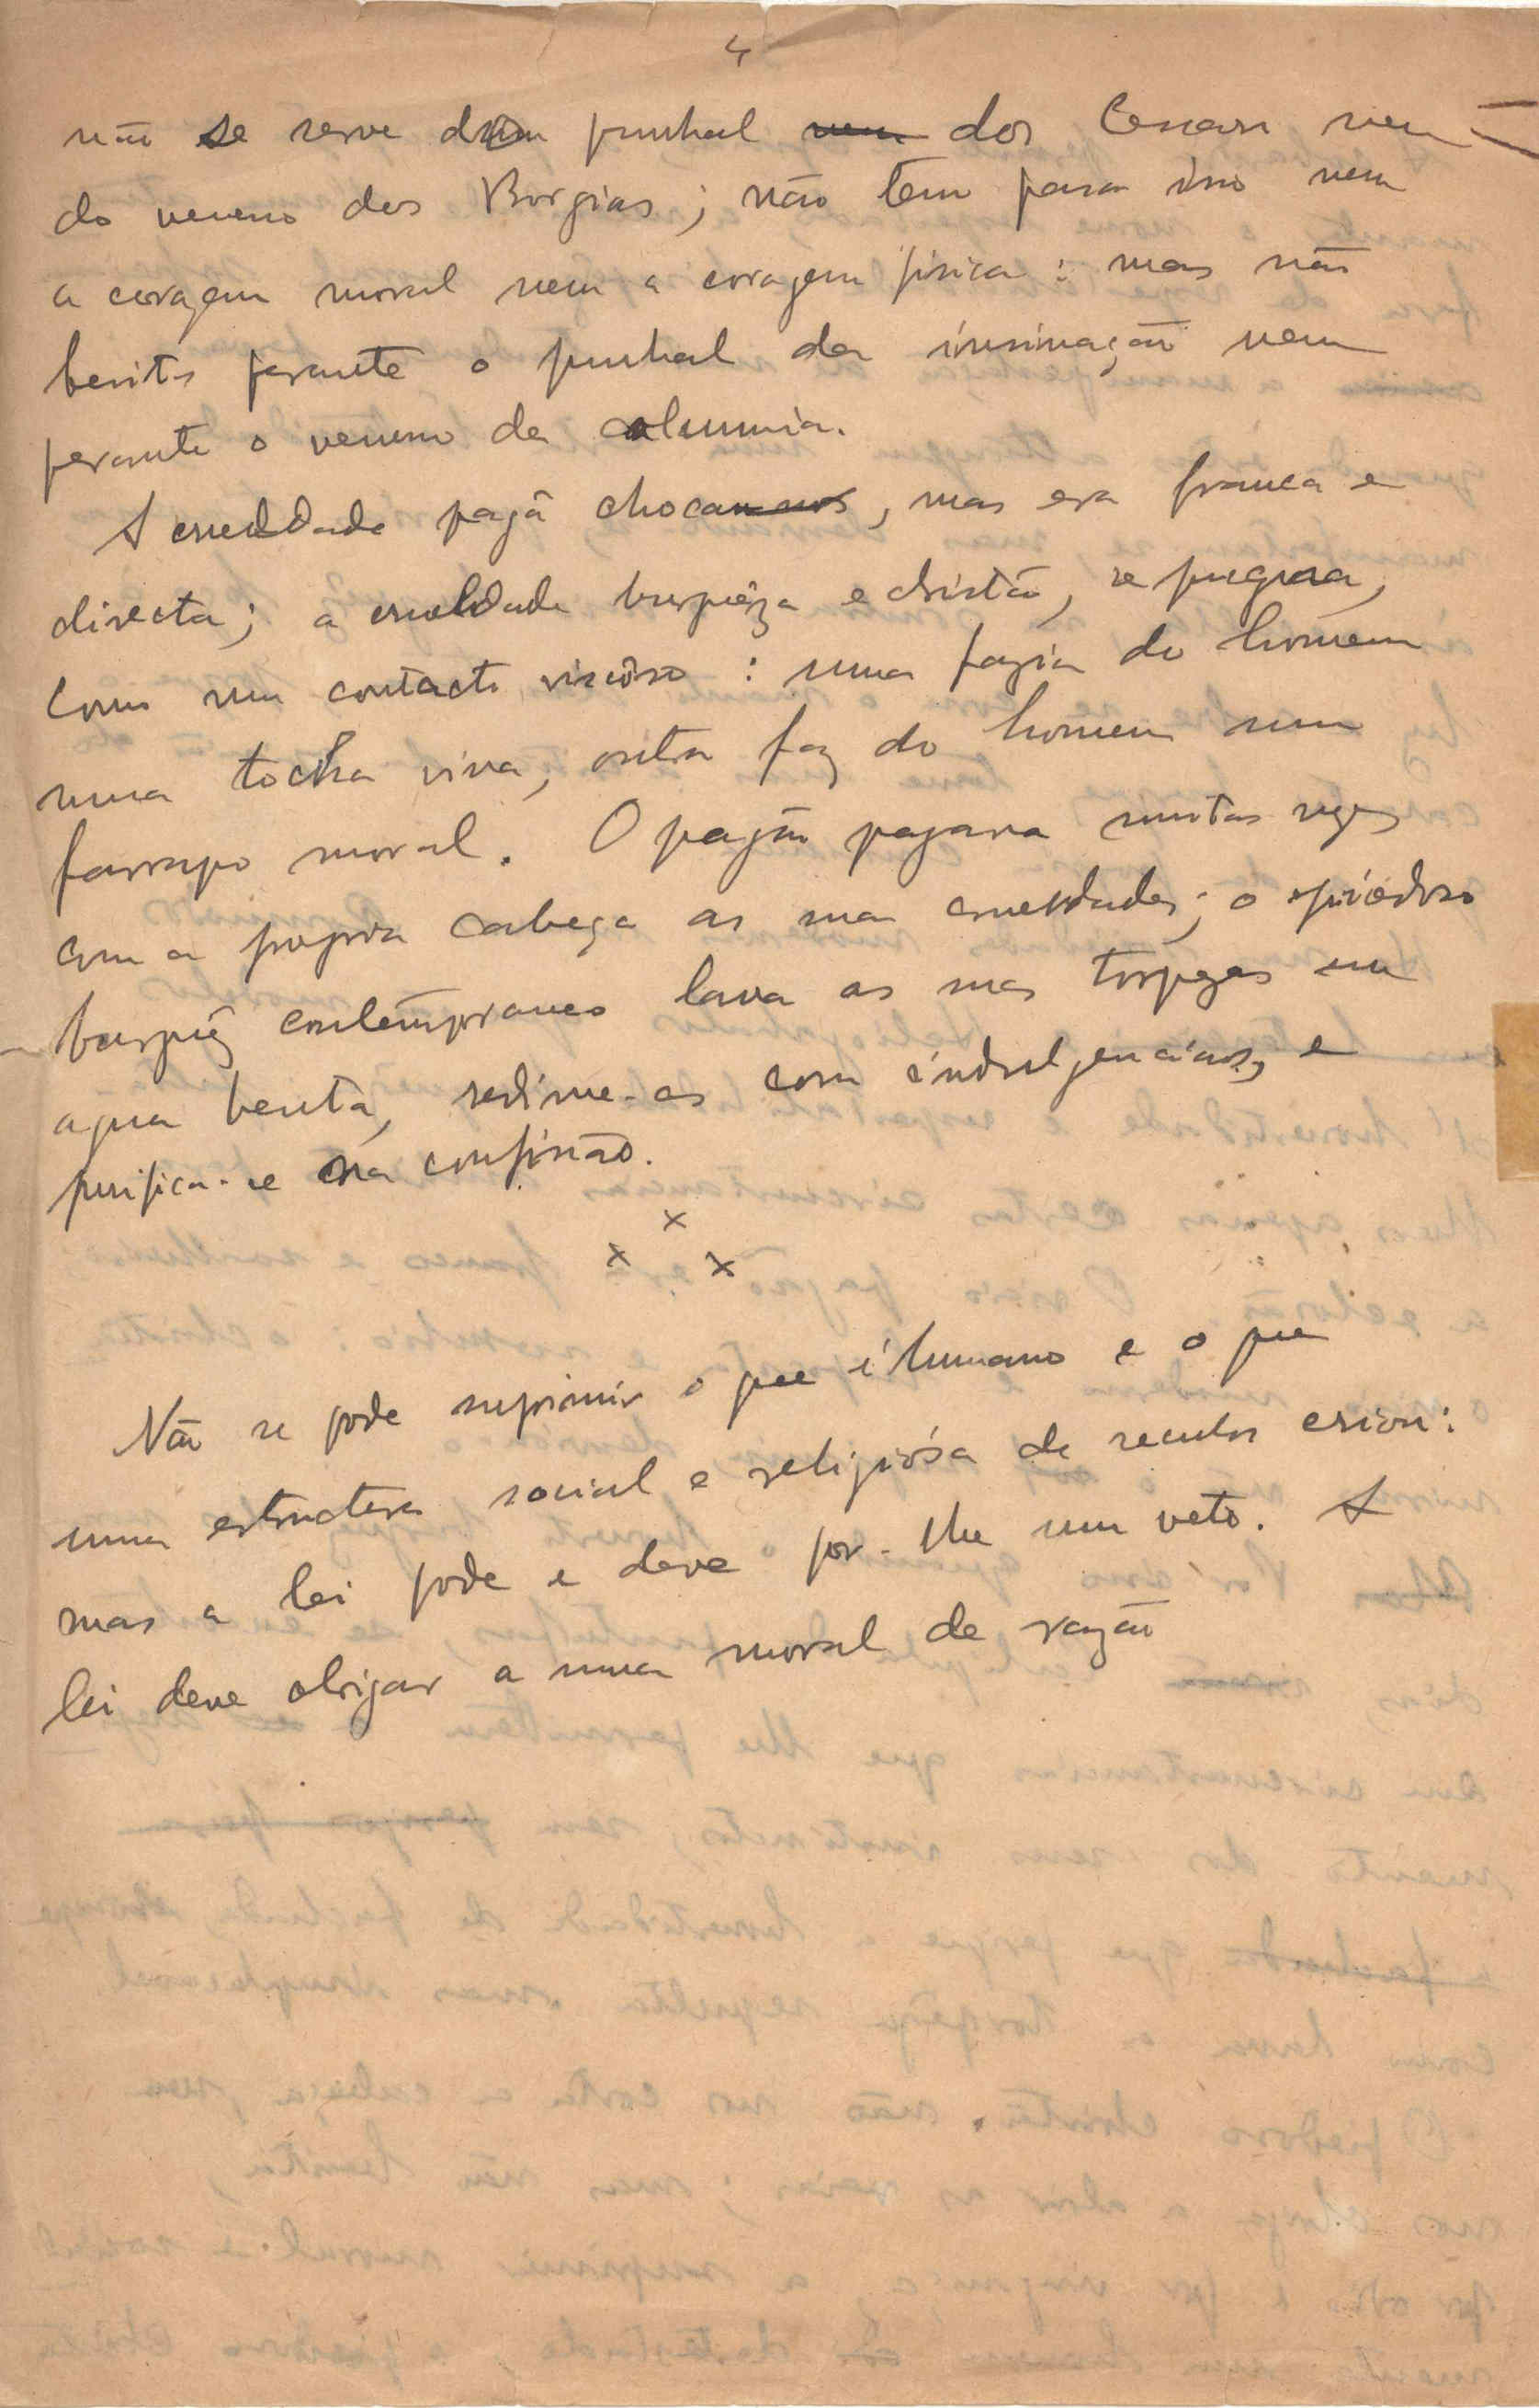 4
não se serve do punhal nem dos Cesares nem
do veneno dos Borgias; não tem para isso nem
a coragem moral nem a coragem fisica: mas não
hesita perante o punhal da insinuação nem
perante o veneno da calumnia.
A crueldade pagã choca, mas era franca e
directa; a crueldade burguêza e christã, repugna,
como um contacto viscôso: uma fazia do homem
uma tocha viva, outra faz do homem um
farrapo moral. O pagão pagava muitas vezes
com a propria cabeça as suas crueldades; o piedoso
burguêz contemporaneo lava as suas torpezas em
agua benta, redime-as com indulgencias, e
purifica-se na confissão.
x
x x
Não se pode suprimir o que é humano e o que
uma estructura social e religiósa de seculos criou:
mas a lei pode e deve por-lhe um veto. A
lei deve obrigar a uma moral de razão